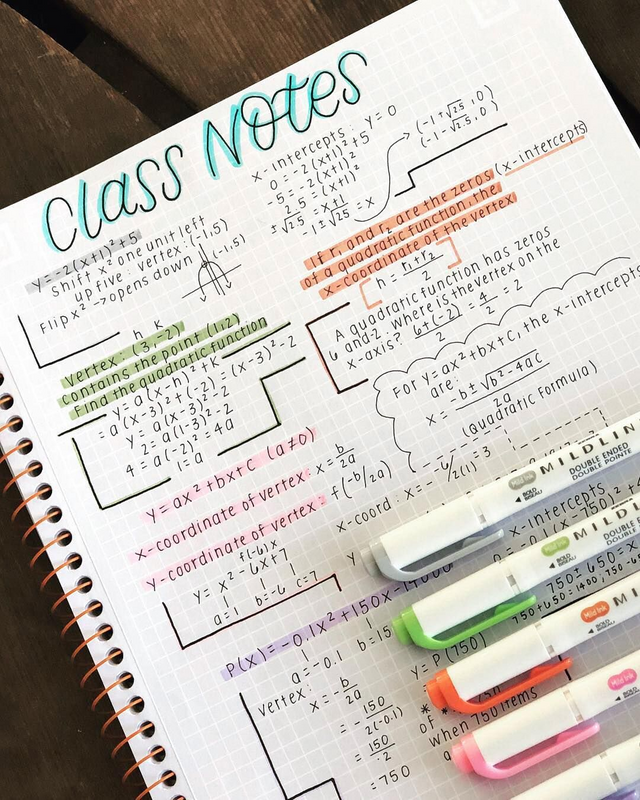 Class Notes
y=-2(x+1)²+5
Shift x² one unit left
up five: vertex: (-1,5)
Flip x² → opens down
(-1,5)
x-intercepts: y=0
0=-2(x+1)²+5
-5=-2(x+1)²
2.5=(x+1)²
±√2.5=x+1
-1±√2.5=x
(-1+√2.5,0)
(-1-√2.5,0)
h k
Vertex: (3,-2)
contains the point (1,2)
Find the quadratic function
y=a(x-h)²+k
=a(x-3)²+(-2)
y=a(x-3)²-2
2=a(1-3)²-2
4=a(-2)²=4a
1=a
=(x-3)²-2
If r₁ and r₂ are the zeros (x-intercepts)
of a quadratic function, the
x-coordinate of the vertex
h=r₁+r₂/2
A quadratic function has zeros
6 and -2. where is the vertex on the
x-axis? 6+(-2)/2=4/2=2
For y=ax²+bx+c, the x-intercepts
are:
x=-b±√b²-4ac/2a
(Quadratic Formula)
y=ax²+bx+c (a≠0)
x-coordinate of vertex: x=b/2a
y-coordinate of vertex: f(-b/2a)
f(-6)x
y=x²-6x+7
a=1 b=-6 c=7
x-coord: x=-6/2(1)=3
y
x-intercepts
0=-0.1(x-750)²+4
750±650=x
750+650=1400, 750-65
P(x)=-0.1x²+150x-14000
a=-0.1 b=15
vertex:
x=-b/2a
=-150/2(-0.1)
=150/.2
=750
y=P(750)
of
750
when 750 items
a
MILDLIN
DOUBLE ENDED
DOUBLE POINTE
Mild Ink
BOLD
BISEAU
MILDLI
DOUBLE
DOUBLE
Mild Ink
BOLD
BISEAU
MILD
DOU
Mild Ink
BOLD
BISEAU
Mild Ink